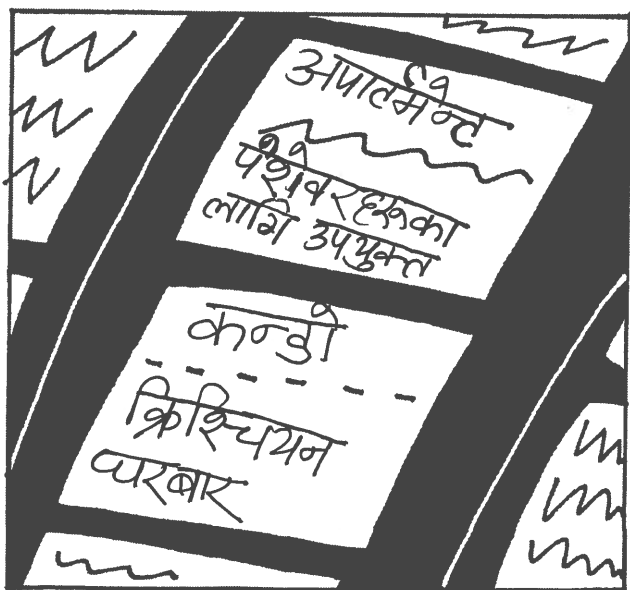 अपार्टमेन्ट
पेशेवरहरूका
लागि उपयुक्त
कन्डो
क्रिस्चियन
घरबार